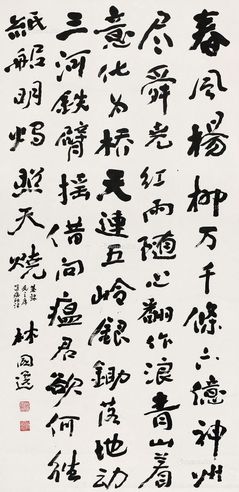 春風楊柳万千條六億神州
尽舜尧紅雨随心翻作浪青山着
意化为桥天連五岭銀鋤落地动
三河鉄臂摇借问瘟君欲何往
紙船明燭照天燒
林国選